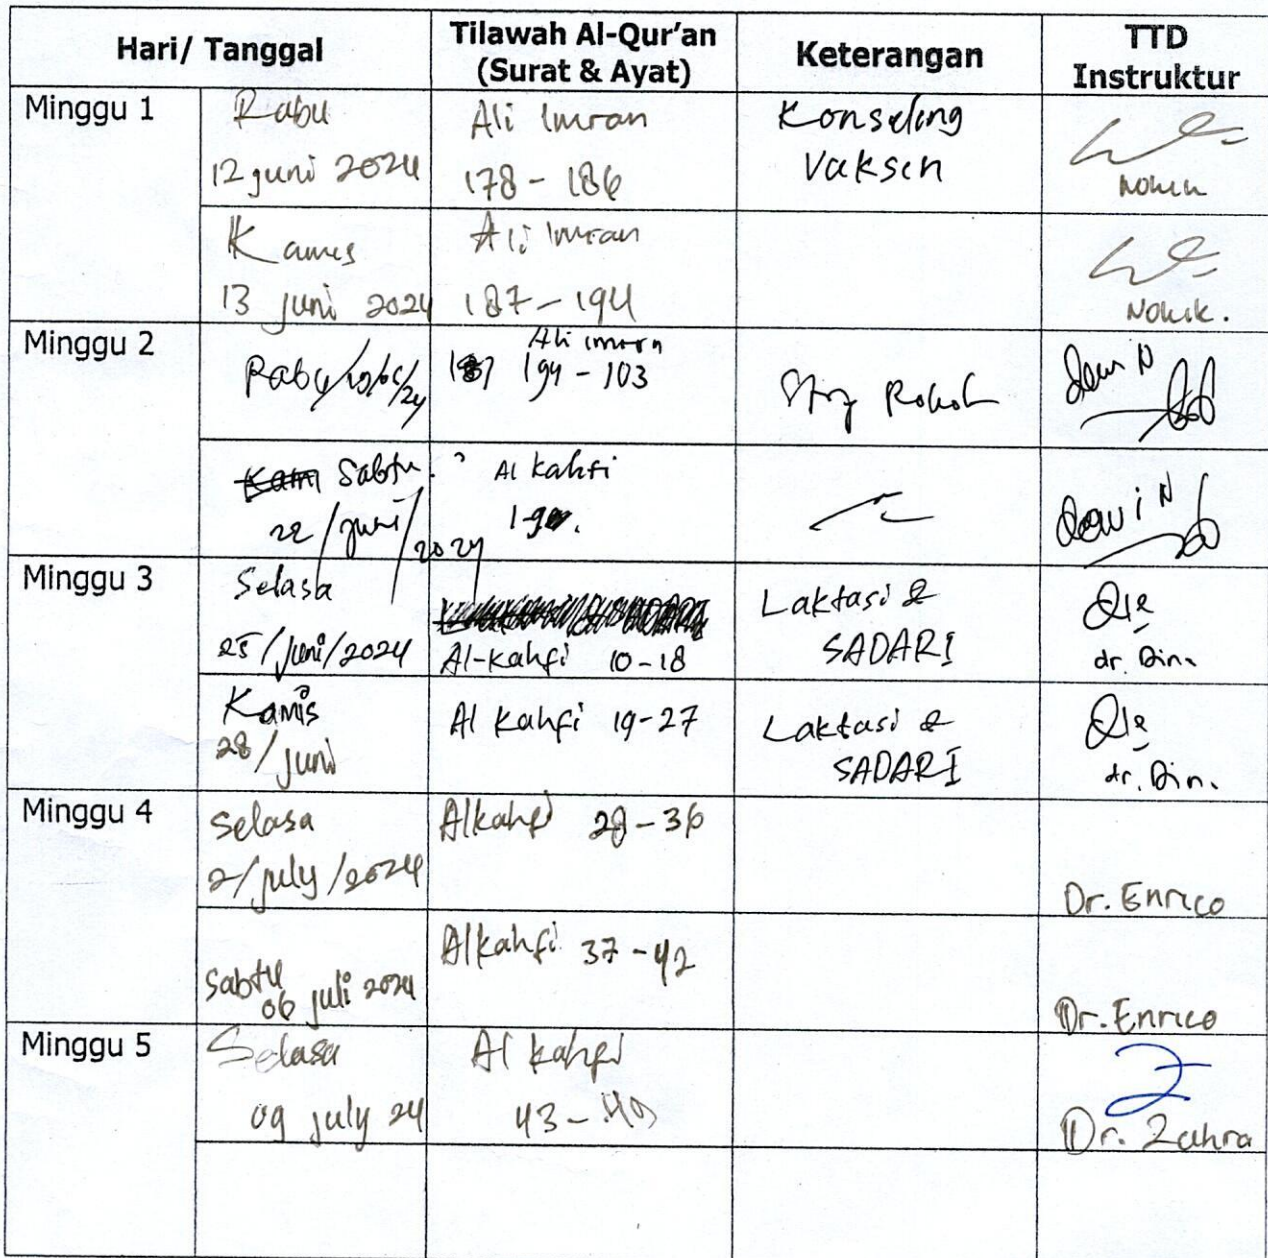 Hari/ Tanggal
Tilawah Al-Qur'an
(Surat & Ayat)
Keterangan
TTD
Instruktur
Minggu 1
Rabu
12 juni 2024
Ali Imran
178 - 186
Konseling
Vaksin
Kamis
13 juni 2024
Ali Imran
187 - 194
Minggu 2
Ali imron
194 - 103
Stop Rokok
Dewi N
Sabtu
22/juni/2024
Al kahfi
Dewi N
Minggu 3
Selasa
25/Juni/2024
Al-kahfi 10-18
Laktasi &
SADARI
dr. Din.
Kamis
28/Juni
Al kahfi 19-27
Laktasi &
SADARI
dr. Din.
Minggu 4
Selasa
2/july/2024
Alkahfi 28-36
Dr. Enrico
Sabtu
06 juli 2024
Alkahfi 37-42
Dr. Enrico
Minggu 5
Selasa
09 july 24
Al kahfi
43 - 49
Dr. Zahra